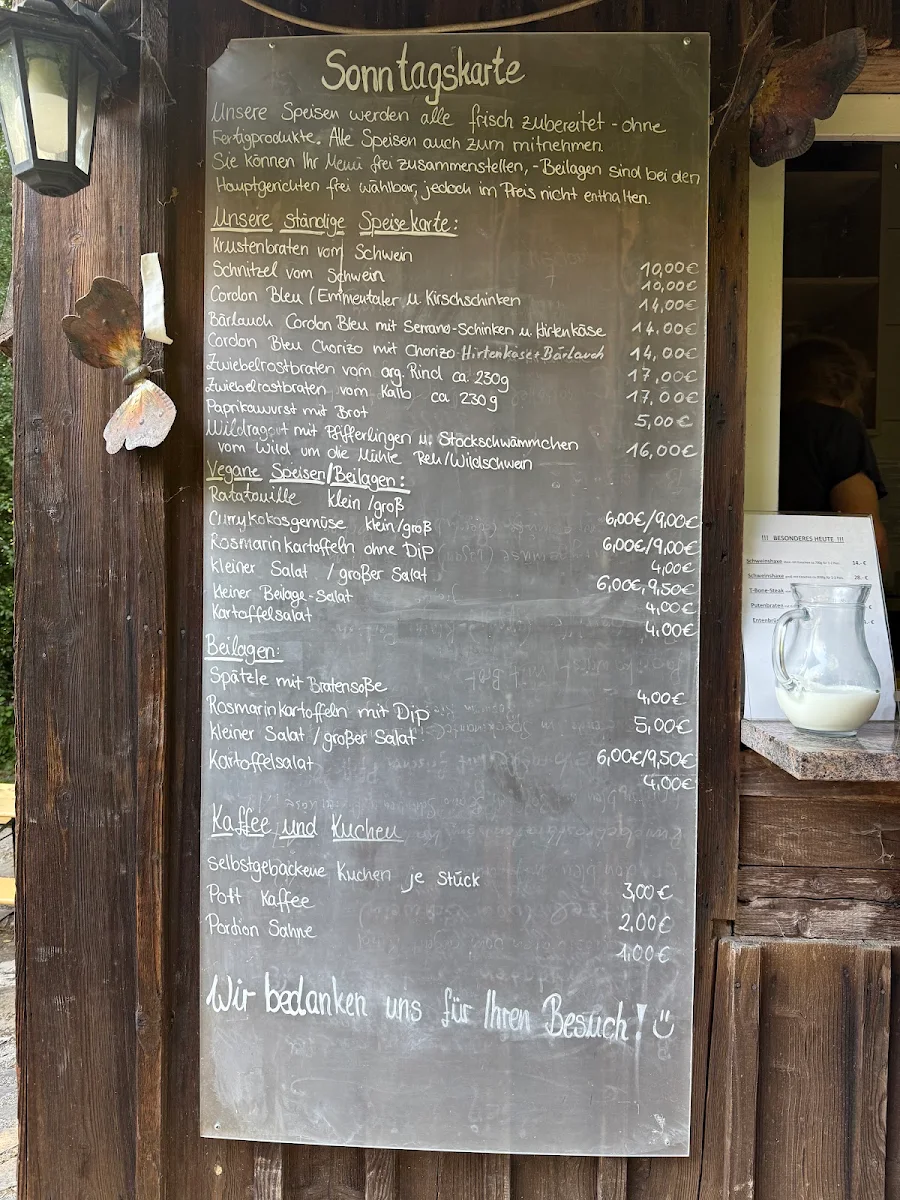 Sonntagskarte
Unsere Speisen werden alle frisch zubereitet - ohne
Fertigprodukte. Alle Speisen auch zum mitnehmen.
Sie können Ihr Menü frei zusammenstellen, - Beilagen sind bei den
Hauptgerichten frei wählbar, jedoch im Preis nicht enthalten.
Unsere ständige Speisekarte:
Krustenbraten vom Schwein 10,00€
Schnitzel vom Schwein 10,00€
Cordon Bleu (Emmentaler u. Kirschschinken 14,00€
Bärlauch Cordon Bleu mit Serrano-Schinken u. Hirtenkäse 14,00€
Cordon Bleu Chorizo mit Chorizo Hirtenkäse + Bärlauch 14,00€
Zwiebelrostbraten vom arg. Rind ca. 230g 17,00€
Zwiebelrostbraten vom Kalb ca 230g 17,00€
Paprikawurst mit Brot 5,00€
Wildragout mit Pfifferlingen u. Stockschwämmchen 16,00€
vom Wild um die Mühle Reh/Wildschwein
Vegane Speisen/Beilagen:
Ratatouille klein/groß 6,00€/9,00€
Currykokosgemüse klein/groß 6,00€/9,00€
Rosmarinkartoffeln ohne Dip 4,00€
kleiner Salat / großer Salat 6,00€,9,50€
kleiner Beilage-Salat 4,00€
Kartoffelsalat 4,00€
Beilagen:
Spätzle mit Bratensoße 4,00€
Rosmarinkartoffeln mit Dip 5,00€
kleiner Salat / großer Salat 6,00€/9,50€
Kartoffelsalat 4,00€
Kaffee und Kuchen
selbstgebackene Kuchen je Stück 3,00€
Pott Kaffee 2,00€
Portion Sahne 1,00€
Wir bedanken uns für Ihren Besuch!
!!! BESONDERES HEUTE !!!
Schweinshaxe 14,- €
Schweinshaxe 28,- €
T-Bone-Steak
Putenbraten